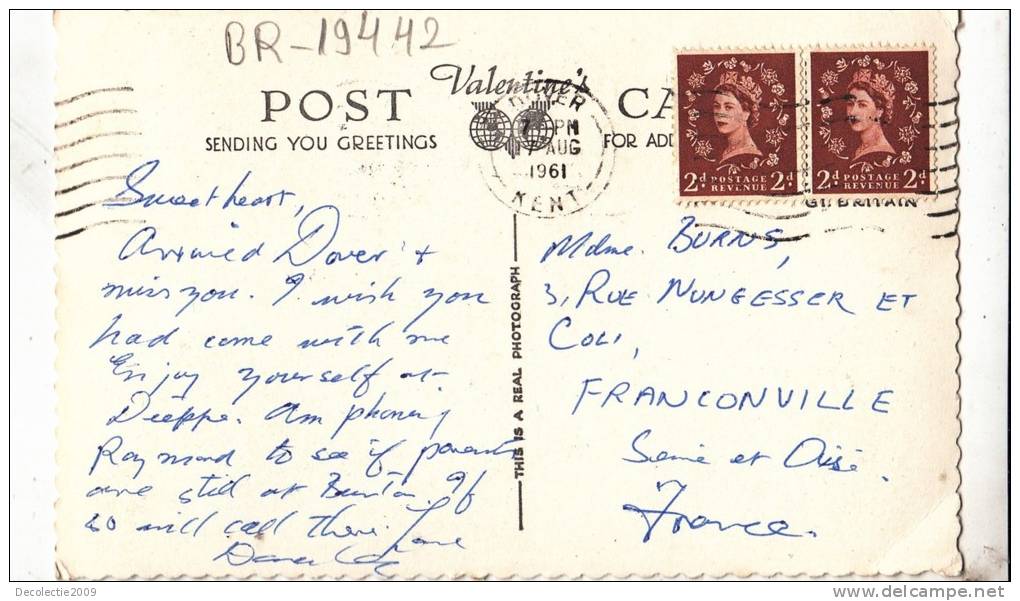 BR-19442
Valentine's
POST CA
SENDING YOU GREETINGS FOR ADD
DOVER
7 PM
7 AUG
1961
KENT
2d POSTAGE REVENUE 2d
2d POSTAGE REVENUE 2d
GT. BRITAIN
THIS IS A REAL PHOTOGRAPH
Sweetheart,
Arrived Dover &
miss you. I wish you
had come with me
Enjoy yourself at
Dieppe. Am phoning
Raymond to see if parents
are still at If
so will call there. Love
Mdme. BURNS,
3, RUE NUNGESSER ET
COLI,
FRANCONVILLE
Seine et Oise.
France.
Decolectie2009
www.delcampe.net